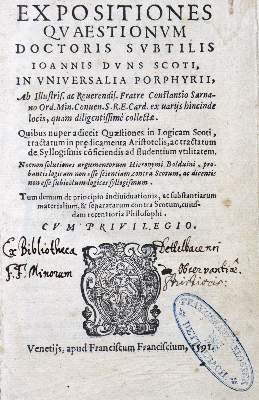 EXPOSITIONES
QVAESTIONVM
DOCTORIS SVBTILIS
IOANNIS DVNS SCOTI,
IN VNIVERSALIA PORPHYRII,
Ab Illustriss. ac Reuerendiss. Fratre Constantio Sarnano
Ord. Min. Conuen. S.R.E. Card. ex varijs hincinde
locis, quam diligentissimè collectæ.
Quibus nuper adiecit Quæstiones in Logicam Scoti,
tractatum in prædicamenta Aristotelis, ac tractatum
de Syllogismis cōficiendis ad studentium vtilitatem,
Necnon solutiones argumentorum Hieronymi Balduini, probantis
logicam non esse scientiam contra Scotum, ac dicentis
non esse subiectū logices syllogismum.
Tum demum de principio indiuiduationis, ac substantiarum
materialium, & separatarum contra Scotum, cuiusdam
recentioris Philosophi.
CVM PRIVILEGIO.
Ex Bibliotheca Dettelbacensi
F.F. Minorum Observantiæ
Venetijs, apud Franciscum Franciscium, 1591.